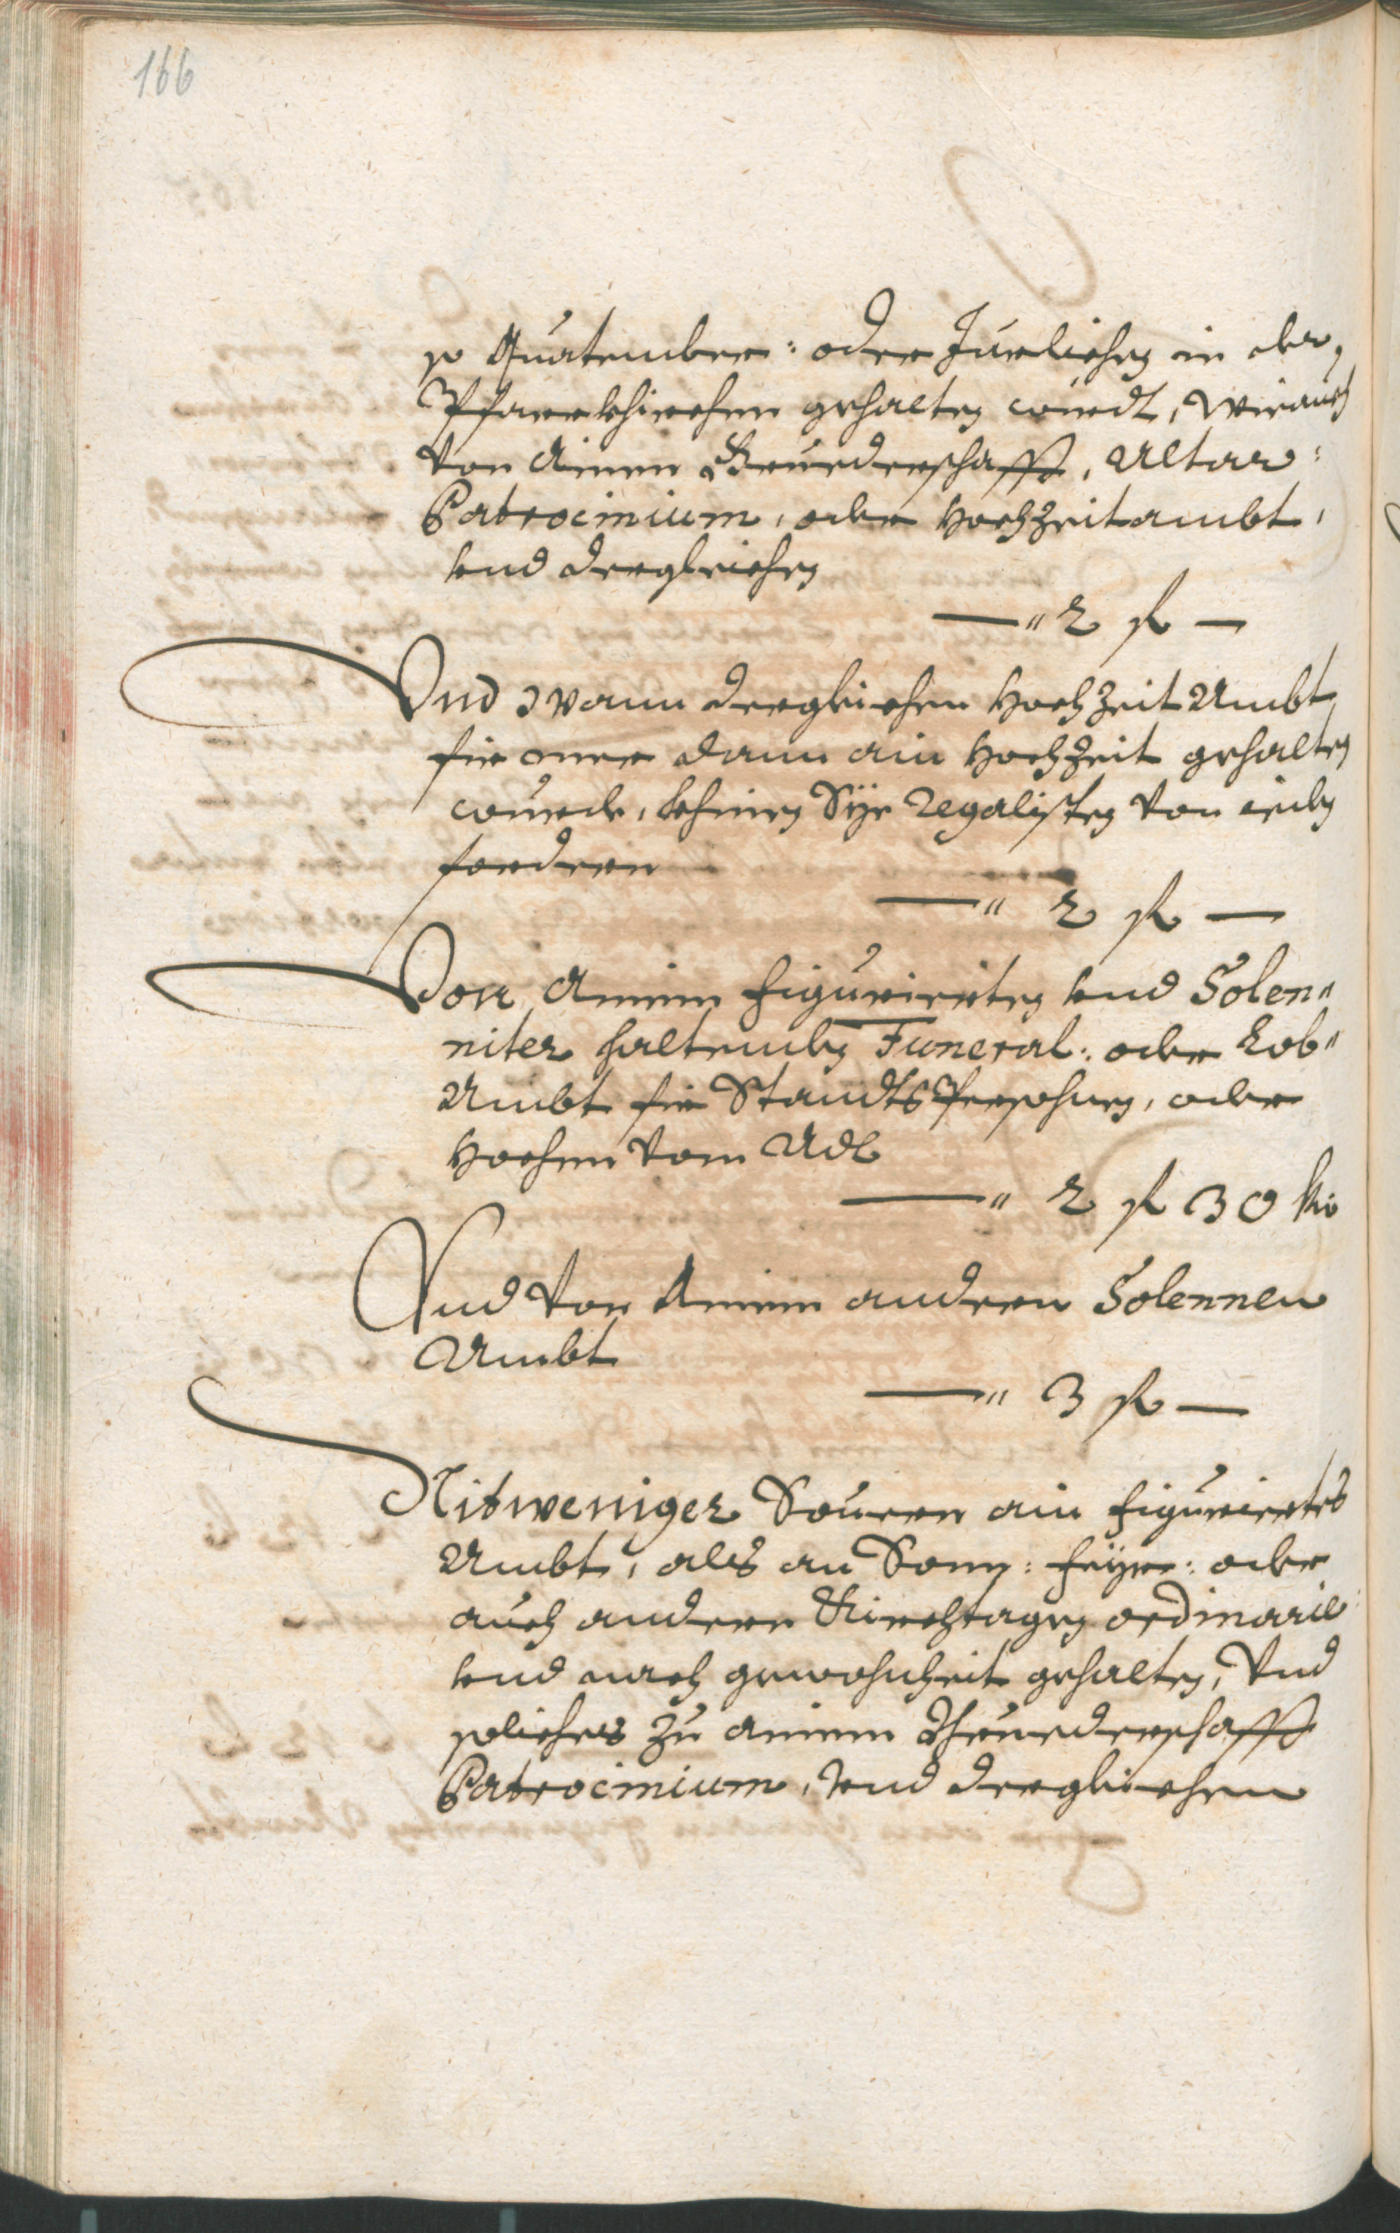 166
so Quatember: oder Jürlichen in der
Pfarrkhirchen gehalten würdt, wie auch
Von Ainem Bruederschafft, Altar:
Patrocinium, oder Hochzeitambt,
vnd dergleichen
—" 2 fl —
Vnd wann dergleichen Hochzeit Ambt
für mer dann ain Hochzeit gehalten
wurde, khinen Sye Regalisten von ieden
fordern
—" 2 fl —
Von Ainem figurierten vnd Solen"
niter haltenden Funeral: oder Lob"
Ambt für StandtsPersohnen, oder
Hochen vom Adl
—" 2 fl 30 kr
Vnd Von Ainem andern Solennen
Ambt
—" 3 fl —
Nitweniger Souern ain figuriertes
Ambt, als an Sonn: feyr: oder
auch andern Kirchtagen ordinarie
vnd nach gewohnheit gehalten, Vnd
solches zu ainem Bruederschafft
Patrocinium, vnd dergleichen